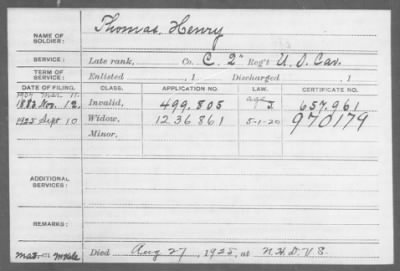 Thomas, Henry
NAME OF SOLDIER:
SERVICE: Late rank, Co. C. 2" Reg't U. S. Cav.
TERM OF SERVICE: Enlisted , 1 Discharged , 1
DATE OF FILING. CLASS. APPLICATION NO. LAW. CERTIFICATE NO.
1883 Nov. 12, Invalid, 499.805 age J 657.961
1925 Sept 10 Widow, 1236861 5-1-20 970179
Minor,
ADDITIONAL SERVICES:
REMARKS:
Died Aug 27, 1925, at N.H.D.V.S.